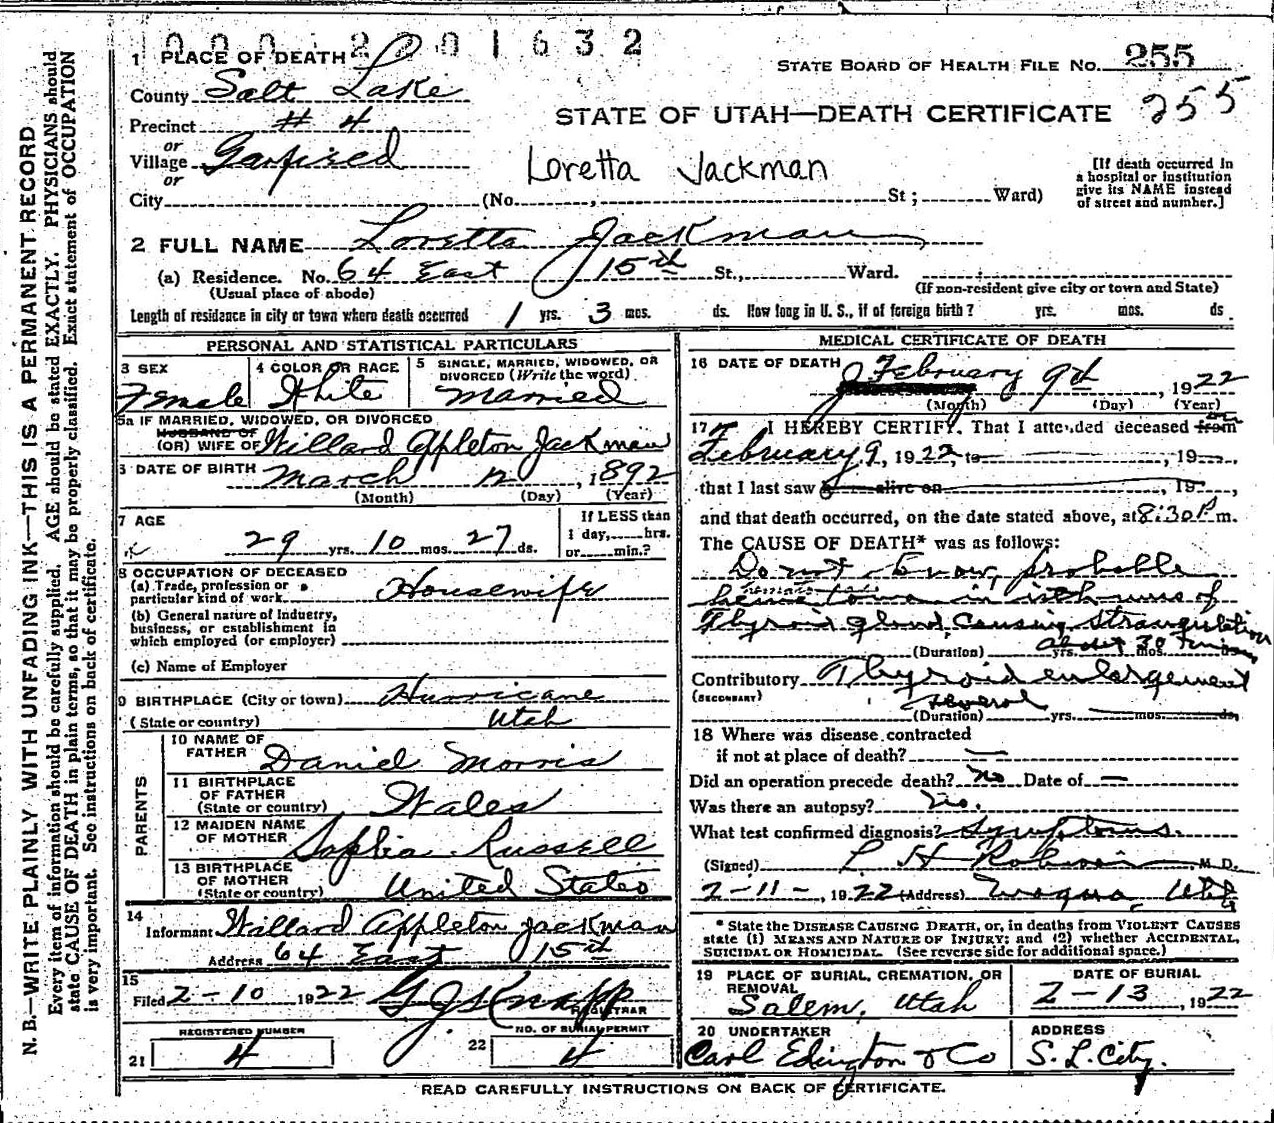 000 220 1632
1 PLACE OF DEATH
STATE BOARD OF HEALTH FILE NO. 255
County Salt Lake
STATE OF UTAH—DEATH CERTIFICATE 255
Precinct # 4
or
Village Garfired
or
Loretta Jackman
[If death occurred in
a hospital or institution
give its NAME instead
of street and number.]
City (No. , St ; Ward)
2 FULL NAME Loretta Jackman
(a) Residence. No. 64 East 15th St., Ward.
(Usual place of abode) (If non-resident give city or town and State)
Length of residence in city or town where death occurred 1 yrs. 3 mos. ds. How long in U. S., if of foreign birth? yrs. mos. ds.
PERSONAL AND STATISTICAL PARTICULARS
3 SEX Female
4 COLOR OR RACE White
5 SINGLE, MARRIED, WIDOWED, OR
DIVORCED (Write the word)
Married
5a IF MARRIED, WIDOWED, OR DIVORCED
HUSBAND OF
(OR) WIFE OF Willard Appleton Jackman
6 DATE OF BIRTH March 12, 1892
(Month) (Day) (Year)
7 AGE
29 yrs. 10 mos. 27 ds.
If LESS than
1 day, hrs.
or min.?
8 OCCUPATION OF DECEASED
(a) Trade, profession or
particular kind of work Housewife
(b) General nature of Industry,
business, or establishment in
which employed (or employer)
(c) Name of Employer
9 BIRTHPLACE (City or town) Hurricane
(State or country) Utah
PARENTS
10 NAME OF
FATHER Daniel Morris
11 BIRTHPLACE
OF FATHER
(State or country) Wales
12 MAIDEN NAME
OF MOTHER Sophia Russell
13 BIRTHPLACE
OF MOTHER
(State or country) United States
14
Informant Willard Appleton Jackman
Address 64 East 15th
15
Filed 2-10 1922 G J Knapp
REGISTRAR
REGISTERED NUMBER
21 4
NO. OF BURIAL PERMIT
22 4
MEDICAL CERTIFICATE OF DEATH
16 DATE OF DEATH February 9th, 1922
(Month) (Day) (Year)
17 I HEREBY CERTIFY. That I attended deceased from on
February 9, 1922, to , 19 ,
that I last saw h alive on , 19 ,
and that death occurred, on the date stated above, at 8:30 P. m.
The CAUSE OF DEATH* was as follows:
Do not know, probable
hematoma in isthmus of
Thyroid gland, causing strangulation
(Duration) about 30 min yrs. mos.
Contributory Thyroid enlargement
(SECONDARY)
several
(Duration) yrs. mos. ds.
18 Where was disease contracted
if not at place of death? —
Did an operation precede death? No Date of —
Was there an autopsy? No.
What test confirmed diagnosis? Symptoms.
(Signed) L H M. D.
2-11-, 1922 (Address) Magna, Utah
* State the DISEASE CAUSING DEATH, or, in deaths from VIOLENT CAUSES
state (1) MEANS AND NATURE OF INJURY; and (2) whether ACCIDENTAL,
SUICIDAL OR HOMICIDAL. (See reverse side for additional space.)
19 PLACE OF BURIAL, CREMATION, OR
REMOVAL
Salem, Utah
DATE OF BURIAL
2-13, 1922
20 UNDERTAKER
Carl Edington & Co
ADDRESS
S. L. City.
READ CAREFULLY INSTRUCTIONS ON BACK OF CERTIFICATE.
N. B.—WRITE PLAINLY WITH UNFADING INK—THIS IS A PERMANENT RECORD
Every item of information should be carefully supplied. AGE should be stated EXACTLY. PHYSICIANS should
state CAUSE OF DEATH in plain terms, so that it may be properly classified. Exact statement of OCCUPATION
is very important. See instructions on back of certificate.